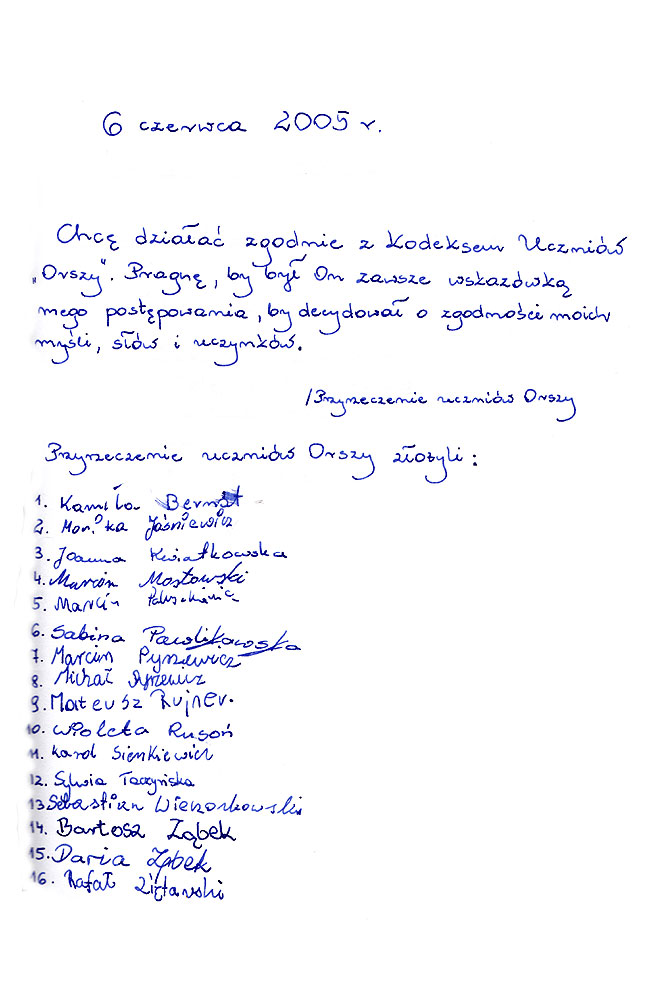 6 czerwca 2005 r.
Chcę działać zgodnie z Kodeksem Uczniów
„Orszy". Pragnę, by był On zawsze wskazówką
mego postępowania, by decydował o zgodności moich
myśli, słów i uczynków.
/Przyrzeczenie uczniów Orszy
Przyrzeczenie uczniów Orszy złożyli:
1. Kamila Bernat
2. Monika Jaśniewicz
3. Joanna Kwiatkowska
4. Marcin Mostowski
5. Marcin
6. Sabina Pawlikowska
7. Marcin Pyniewicz
8. Michał
9. Mateusz Rujner.
10. Wioleta Rusoń
11. Karol Sienkiewicz
12. Sylwia Taczyńska
13 Sebastian Wieczorkowski
14. Bartosz Ząbek
15. Daria Ząbek
16. Rafał Ziętarski